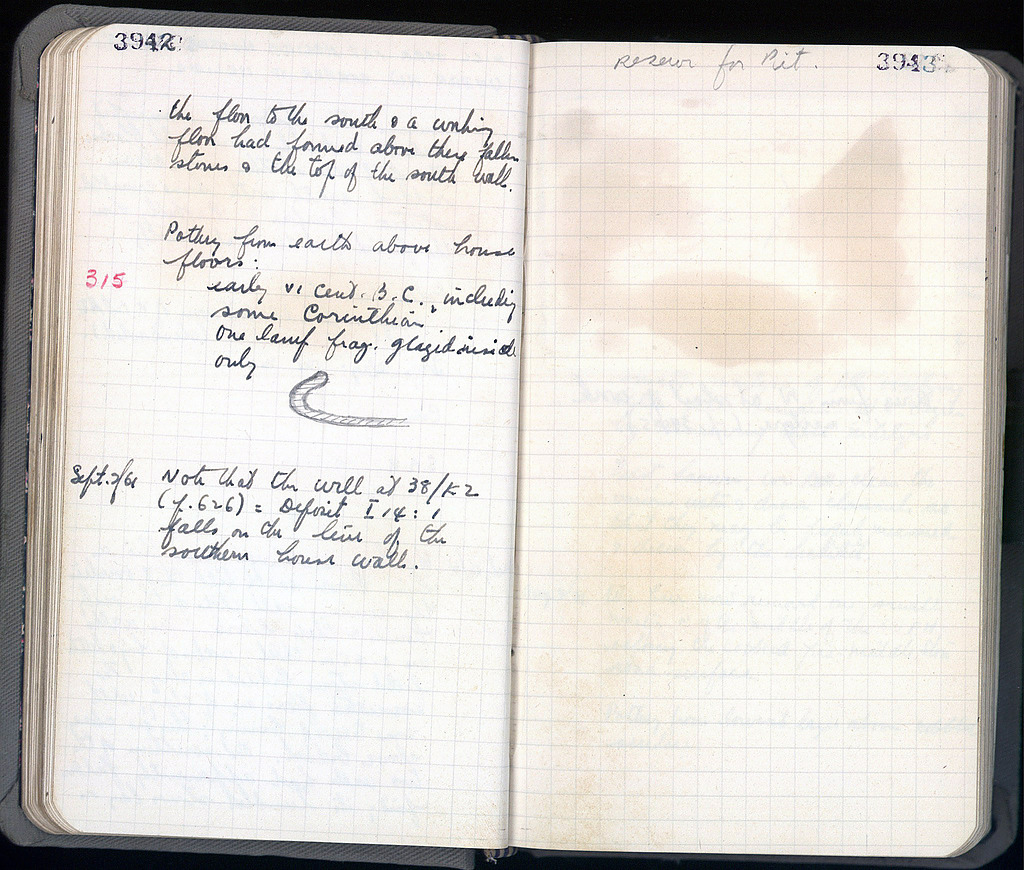 3942
the floor to the south & a working
floor had formed above these fallen
stones & the top of the south wall.
Pottery from earth above house
floors:
315
early VI cent. B.C., including
some Corinthian
one lamp frag. glazed inside
only
Sept. 2/61 Note that the well at 38/ΚΖ
(p. 626) = Deposit I 14:1
falls on the line of the
southern house wall.
reserve for Pit.
3943